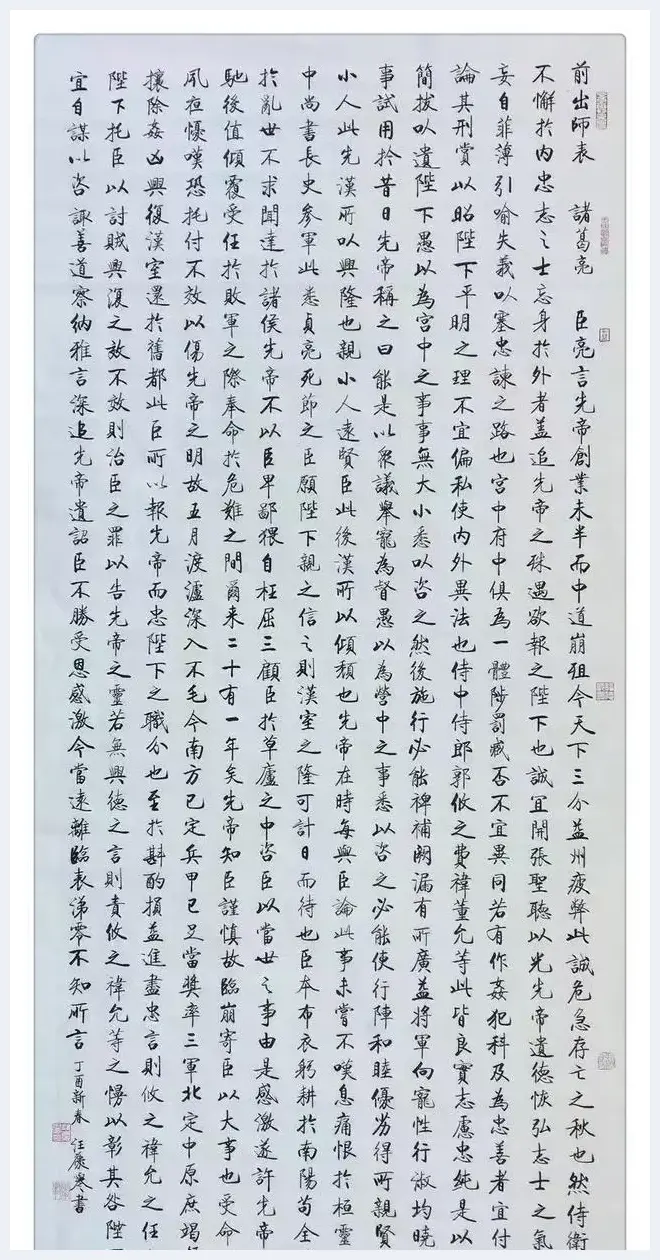 前出師表 諸葛亮 臣亮言先帝創業未半而中道崩殂今天下三分益州疲弊此誠危急存亡之秋也然侍衛
不懈於内忠志之士忘身於外者蓋追先帝之殊遇欲報之陛下也誠宜開張聖聽以光先帝遺德恢弘志士之氣
妄自菲薄引喻失義以塞忠諫之路也宮中府中俱為一體陟罰臧否不宜異同若有作姦犯科及為忠善者宜付
論其刑賞以昭陛下平明之理不宜偏私使内外異法也侍中侍郎郭攸之費禕董允等此皆良實志慮忠純是以
簡拔以遺陛下愚以為宮中之事事無大小悉以咨之然後施行必能裨補闕漏有所廣益將軍向寵性行淑均曉
事試用於昔日先帝稱之曰能是以眾議舉寵為督愚以為營中之事悉以咨之必能使行陣和睦優劣得所親賢
小人此先漢所以興隆也親小人遠賢臣此後漢所以傾頹也先帝在時每與臣論此事未嘗不嘆息痛恨於桓靈
中尚書長史參軍此悉貞亮死節之臣願陛下親之信之則漢室之隆可計日而待也臣本布衣躬耕於南陽苟全
於亂世不求聞達於諸侯先帝不以臣卑鄙猥自枉屈三顧臣於草廬之中咨臣以當世之事由是感激遂許先帝
馳後值傾覆受任於敗軍之際奉命於危難之間爾来二十有一年矣先帝知臣謹慎故臨崩寄臣以大事也受命
夙夜憂嘆恐托付不效以傷先帝之明故五月渡瀘深入不毛今南方已定兵甲已足當獎率三軍北定中原庶竭
攘除姦凶興復漢室還於舊都此臣所以報先帝而忠陛下之職分也至於斟酌損益進盡忠言則攸之禕允之任
陛下托臣以討賊興復之效不效則治臣之罪以告先帝之靈若無興德之言則責攸之禕允等之慢以彰其咎陛
宜自謀以咨諏善道察納雅言深追先帝遺詔臣不勝受恩感激今當遠離臨表涕零不知所言 丁酉新春 汪康寒書